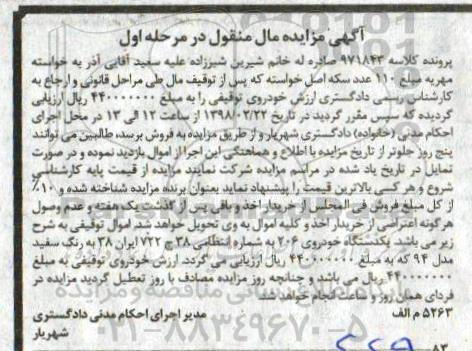 آگهی مزایده مال منقول در مرحله اول
پرونده کلاسه ۹۷۱۸۴۳ صادره له خانم شیرین شیرزاده علیه سعید آقایی آذر به خواسته
مهریه مبلغ ۱۱۰ عدد سکه اصل خواسته که پس از توقیف مال طی مراحل قانونی و ارجاع به
کارشناس رسمی دادگستری ارزش خودروی توقیفی را به مبلغ ۴۴۰۰۰۰۰۰۰ ریال ارزیابی
گردیده که سپس مقرر گردید در تاریخ ۱۳۹۸/۰۲/۲۲ از ساعت ۱۲ الی ۱۳ در محل اجرای
احکام مدنی (خانواده) دادگستری شهریار و از طریق مزایده به فروش برسد، طالبین می توانند
پنج روز جلوتر از تاریخ مزایده با اطلاع و هماهنگی این اجرا از اموال بازدید نموده و در صورت
تمایل در تاریخ یاد شده در مراسم مزایده شرکت نمایند مزایده از قیمت پایه کارشناسی
شروع و هر کسی بالاترین قیمت را پیشنهاد نماید بعنوان برنده مزایده شناخته شده و ۱۰٪
از کل مبلغ فروش فی المجلس از خریدار اخذ و باقی پس از گذشت یک هفته و عدم وصول
هرگونه اعتراضی از خریدار اخذ و کلیه اموال به وی تحویل خواهد شد. اموال توقیفی به شرح
زیر می باشد. یکدستگاه خودروی ۲۰۶ به شماره انتظامی ۲۸ ج ۷۲۲ ایران ۳۸ به رنگ سفید
مدل ۹۴ که به مبلغ ۴۴۰۰۰۰۰۰۰ ریال ارزیابی می گردد. ارزش خودروی توقیفی به مبلغ
۴۴۰۰۰۰۰۰۰ ریال می باشد و چنانچه روز مزایده مصادف با روز تعطیل گردید مزایده در
فردای همان روز و ساعت انجام خواهد شد.
۵۲۶۳ م الف
مدیر اجرای احکام مدنی دادگستری
شهریار
۸۳
۰۲۱-۸۸۳۴۹۶۷۰-۵